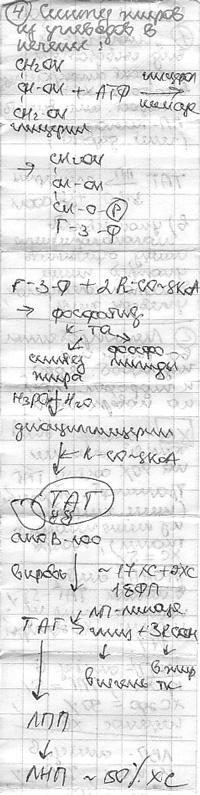 ④ Синтез жиров
из углеводов в
печени:
CH₂OH
CH-OH + АТФ глицерол
киназа →
CH₂OH
глицерин
→ CH₂OH
CH-OH
CH-O-Ⓟ
Г-3-Ф
Г-3-Ф + 2 R-CO~SKoA
→ фосфатид.
к-та
синтез фосфо-
жира липиды
H₃PO₄ H₂O
диацилглицерин
← R-CO~SKoA
ТАГ
апо В-100
в кровь ~ 17% ХС + ЭХС
18% ФЛ
ЛП-липаза
ТАГ → глиц + 3RCOOH
в печень в жир
тк.
ЛПП
ЛНП ~ 50% ХС